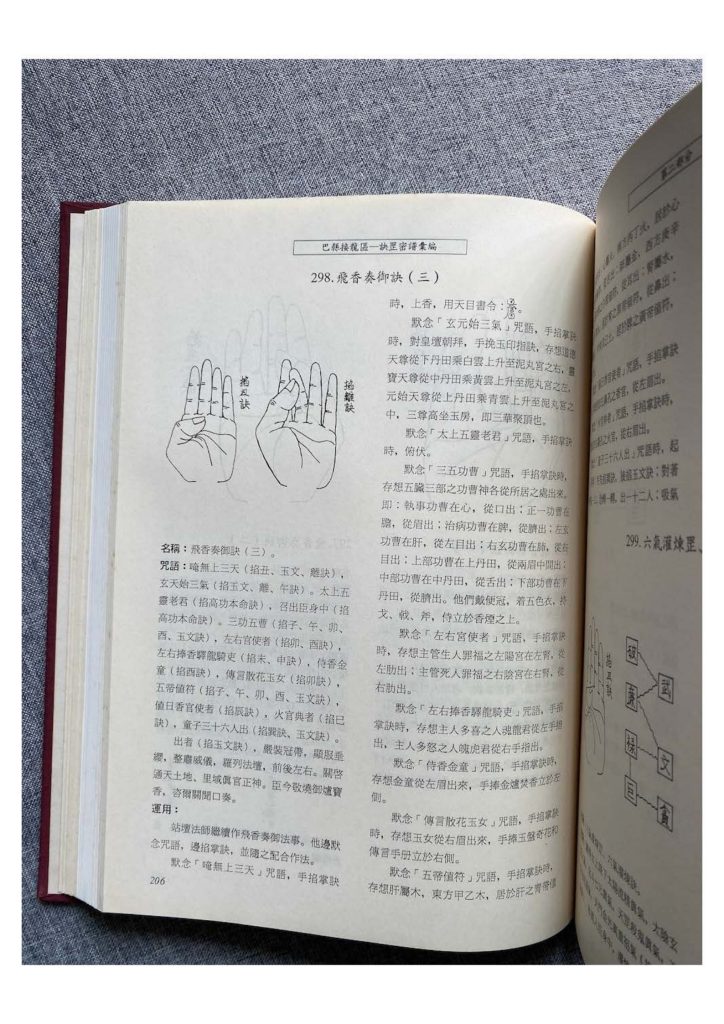 巴縣接龍區—訣罡密譜彙編
298.飛香奏御訣（三）
掐丑訣
掐離訣
名稱：飛香奏御訣（三）。
咒語：唵無上三天（掐丑、玉文、離訣），
玄天始三氣（掐玉文、離、午訣）。太上五
靈老君（掐高功本命訣），召出臣身中（掐
高功本命訣）。三功五曹（掐子、午、卯、
酉、玉文訣），左右官使者（掐卯、酉訣），
左右捧香驛龍騎吏（掐未、申訣），侍香金
童（掐酉訣），傳言散花玉女（掐卯訣），
五帝値符（掐子、午、卯、酉、玉文訣），
値日香官使者（掐辰訣），火官典者（掐巳
訣），童子三十六人出（掐巽訣、玉文訣）。
出者（掐玉文訣），嚴裝冠帶，顯服垂
纓，整肅威儀，羅列法壇，前後左右。關啓
通天土地、里域眞官正神。臣今敬燒御爐寶
香，咨爾關聞口奏。
運用：
站壇法師繼續作飛香奏御法事。他邊默
念咒語，邊掐掌訣，並隨之配合作法。
默念「唵無上三天」咒語，手掐掌訣
206
時，上香，用天目書令：。
默念「玄元始三氣」咒語，手掐掌訣
時，對皇壇朝拜，手挽玉印指訣，存想道德
天尊從下丹田乘白雲上升至泥丸宮之右，靈
寶天尊從中丹田乘黃雲上升至泥丸宮之左，
元始天尊從上丹田乘青雲上升至泥丸宮之
中，三尊高坐玉房，即三華聚頂也。
默念「太上五靈老君」咒語，手掐掌訣
時，俯伏。
默念「三五功曹」咒語，手掐掌訣時，
存想五臟三部之功曹神各從所居之處出來。
即：執事功曹在心，從口出；正一功曹在
膽，從眉出；治病功曹在脾，從臍出；左玄
功曹在肝，從左目出；右玄功曹在肺，從右
目出；上部功曹在上丹田，從兩眉中間出；
中部功曹在中丹田，從舌出；下部功曹在下
丹田，從臍出。他們戴使冠，着五色衣，持
戈、戟、斧，侍立於香煙之上。
默念「左右宮使者」咒語，手掐掌訣
時，存想主管生人罪福之左陽宮在左腎，從
左肋出；主管死人罪福之右陰宮在右腎，從
右肋出。
默念「左右捧香驛龍騎吏」咒語，手掐
掌訣時，存想主人多喜之人魂龍君從左手指
出，主人多怒之人魄虎君從右手指出。
默念「侍香金童」咒語，手掐掌訣時，
存想金童從左眉出來，手捧金爐焚香立於左
側。
默念「傳言散花玉女」咒語，手掐掌訣
時，存想玉女從右眉出來，手捧玉盤奇花和
傳言手册立於右側。
默念「五帝値符」咒語，手掐掌訣時，
存想肝屬木，東方甲乙木，居於肝之青帝値
第二部分
咒語，手掐掌訣
299.六氣灌煉罡、
武
文
貪